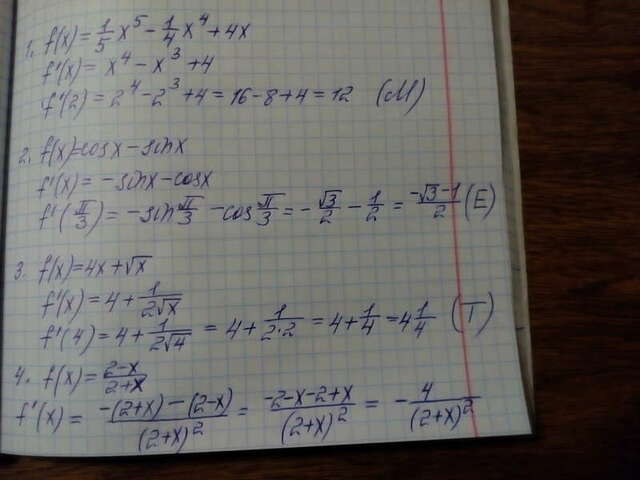 1. f(x) = 1/5 x⁵ - 1/4 x⁴ + 4x
f'(x) = x⁴ - x³ + 4
f'(2) = 2⁴ - 2³ + 4 = 16 - 8 + 4 = 12 (М)
2. f(x) = cosx - sinx
f'(x) = -sinx - cosx
f'(π/3) = -sin π/3 - cos π/3 = - √3/2 - 1/2 = (-√3 - 1)/2 (Е)
3. f(x) = 4x + √x
f'(x) = 4 + 1/(2√x)
f'(4) = 4 + 1/(2√4) = 4 + 1/(2·2) = 4 + 1/4 = 4 1/4 (Т)
4. f(x) = (2-x)/(2+x)
f'(x) = (-(2+x) - (2-x))/(2+x)² = (-2-x-2+x)/(2+x)² = - 4/(2+x)²